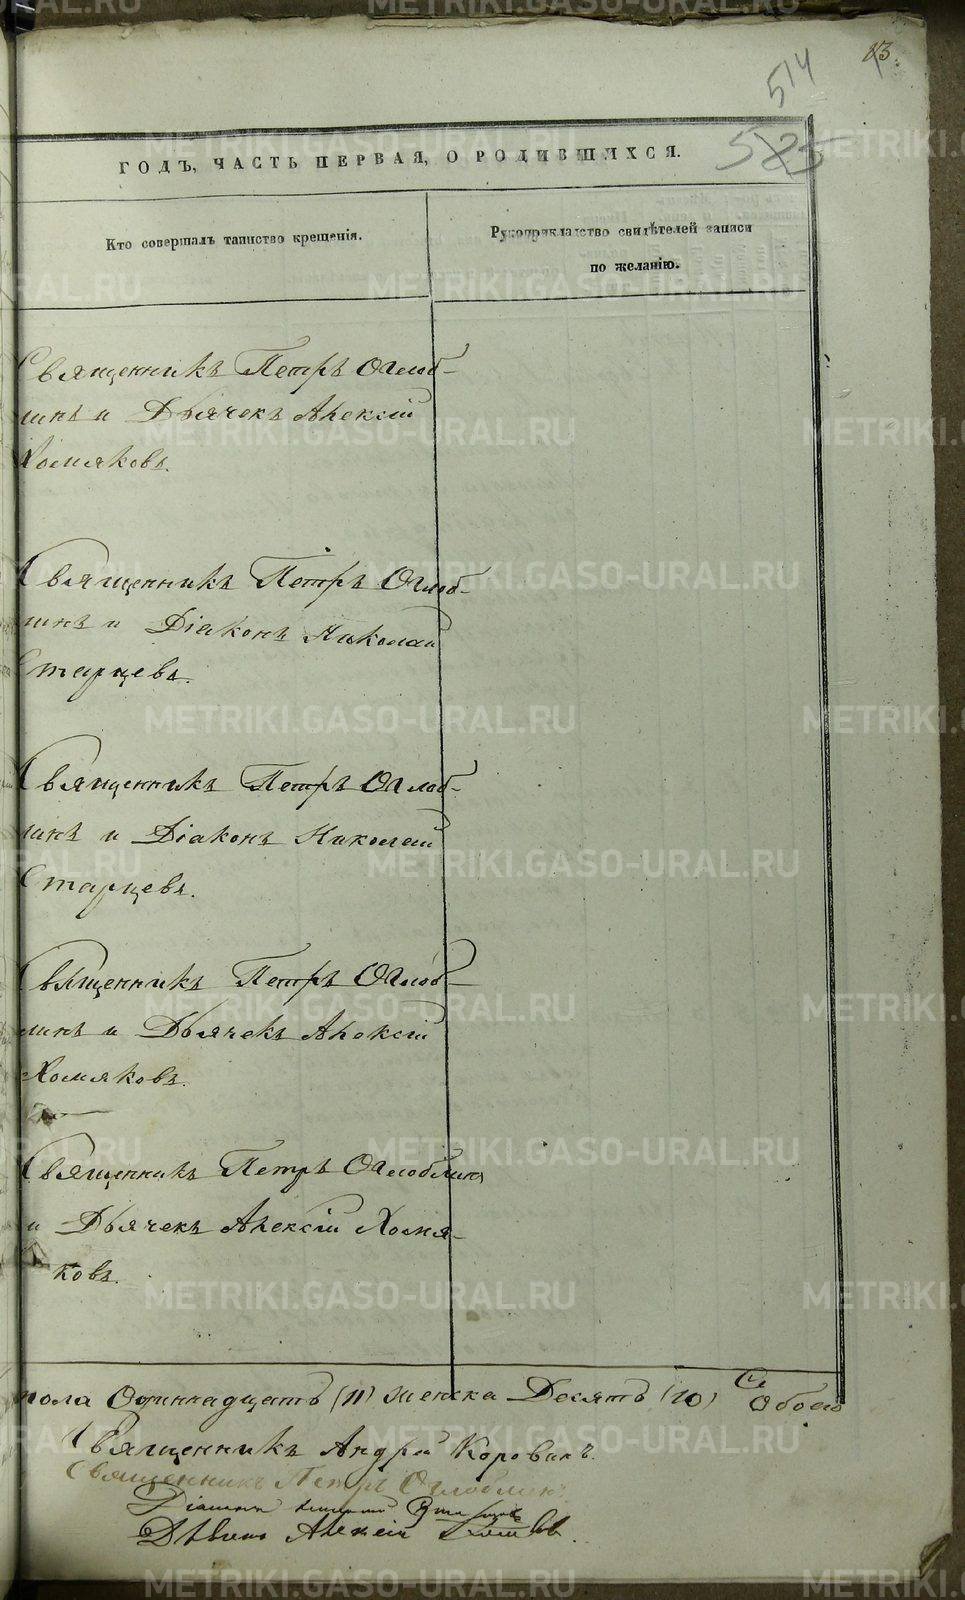 83.
514
523
ГОДЪ, ЧАСТЬ ПЕРВАЯ, О РОДИВШИХСЯ.
Кто совершалъ таинство крещенія.
Рукоприкладство свидѣтелей записи
по желанію.
Священникъ Петръ Оглоб-
линъ и Дьячекъ Алексій
Хомяковъ.
Священникъ Петръ Оглоб-
линъ и Діаконъ Николай
Старцевъ.
Священникъ Петръ Оглоб-
линъ и Діаконъ Николай
Старцевъ.
Священникъ Петръ Оглоб-
линъ и Дьячекъ Алексій
Хомяковъ.
Священникъ Петръ Оглоблинъ
и Дьячекъ Алексій Хомя-
ковъ.
пола Одиннадцать (11) женска Десять (10) Обоего
Священникъ Андрей Коровинъ.
Священникъ Петръ Оглоблинъ
Діаконъ Николай Старцевъ
Дьячекъ Алексій Хомяковъ.
METRIKI.GASO-URAL.RU